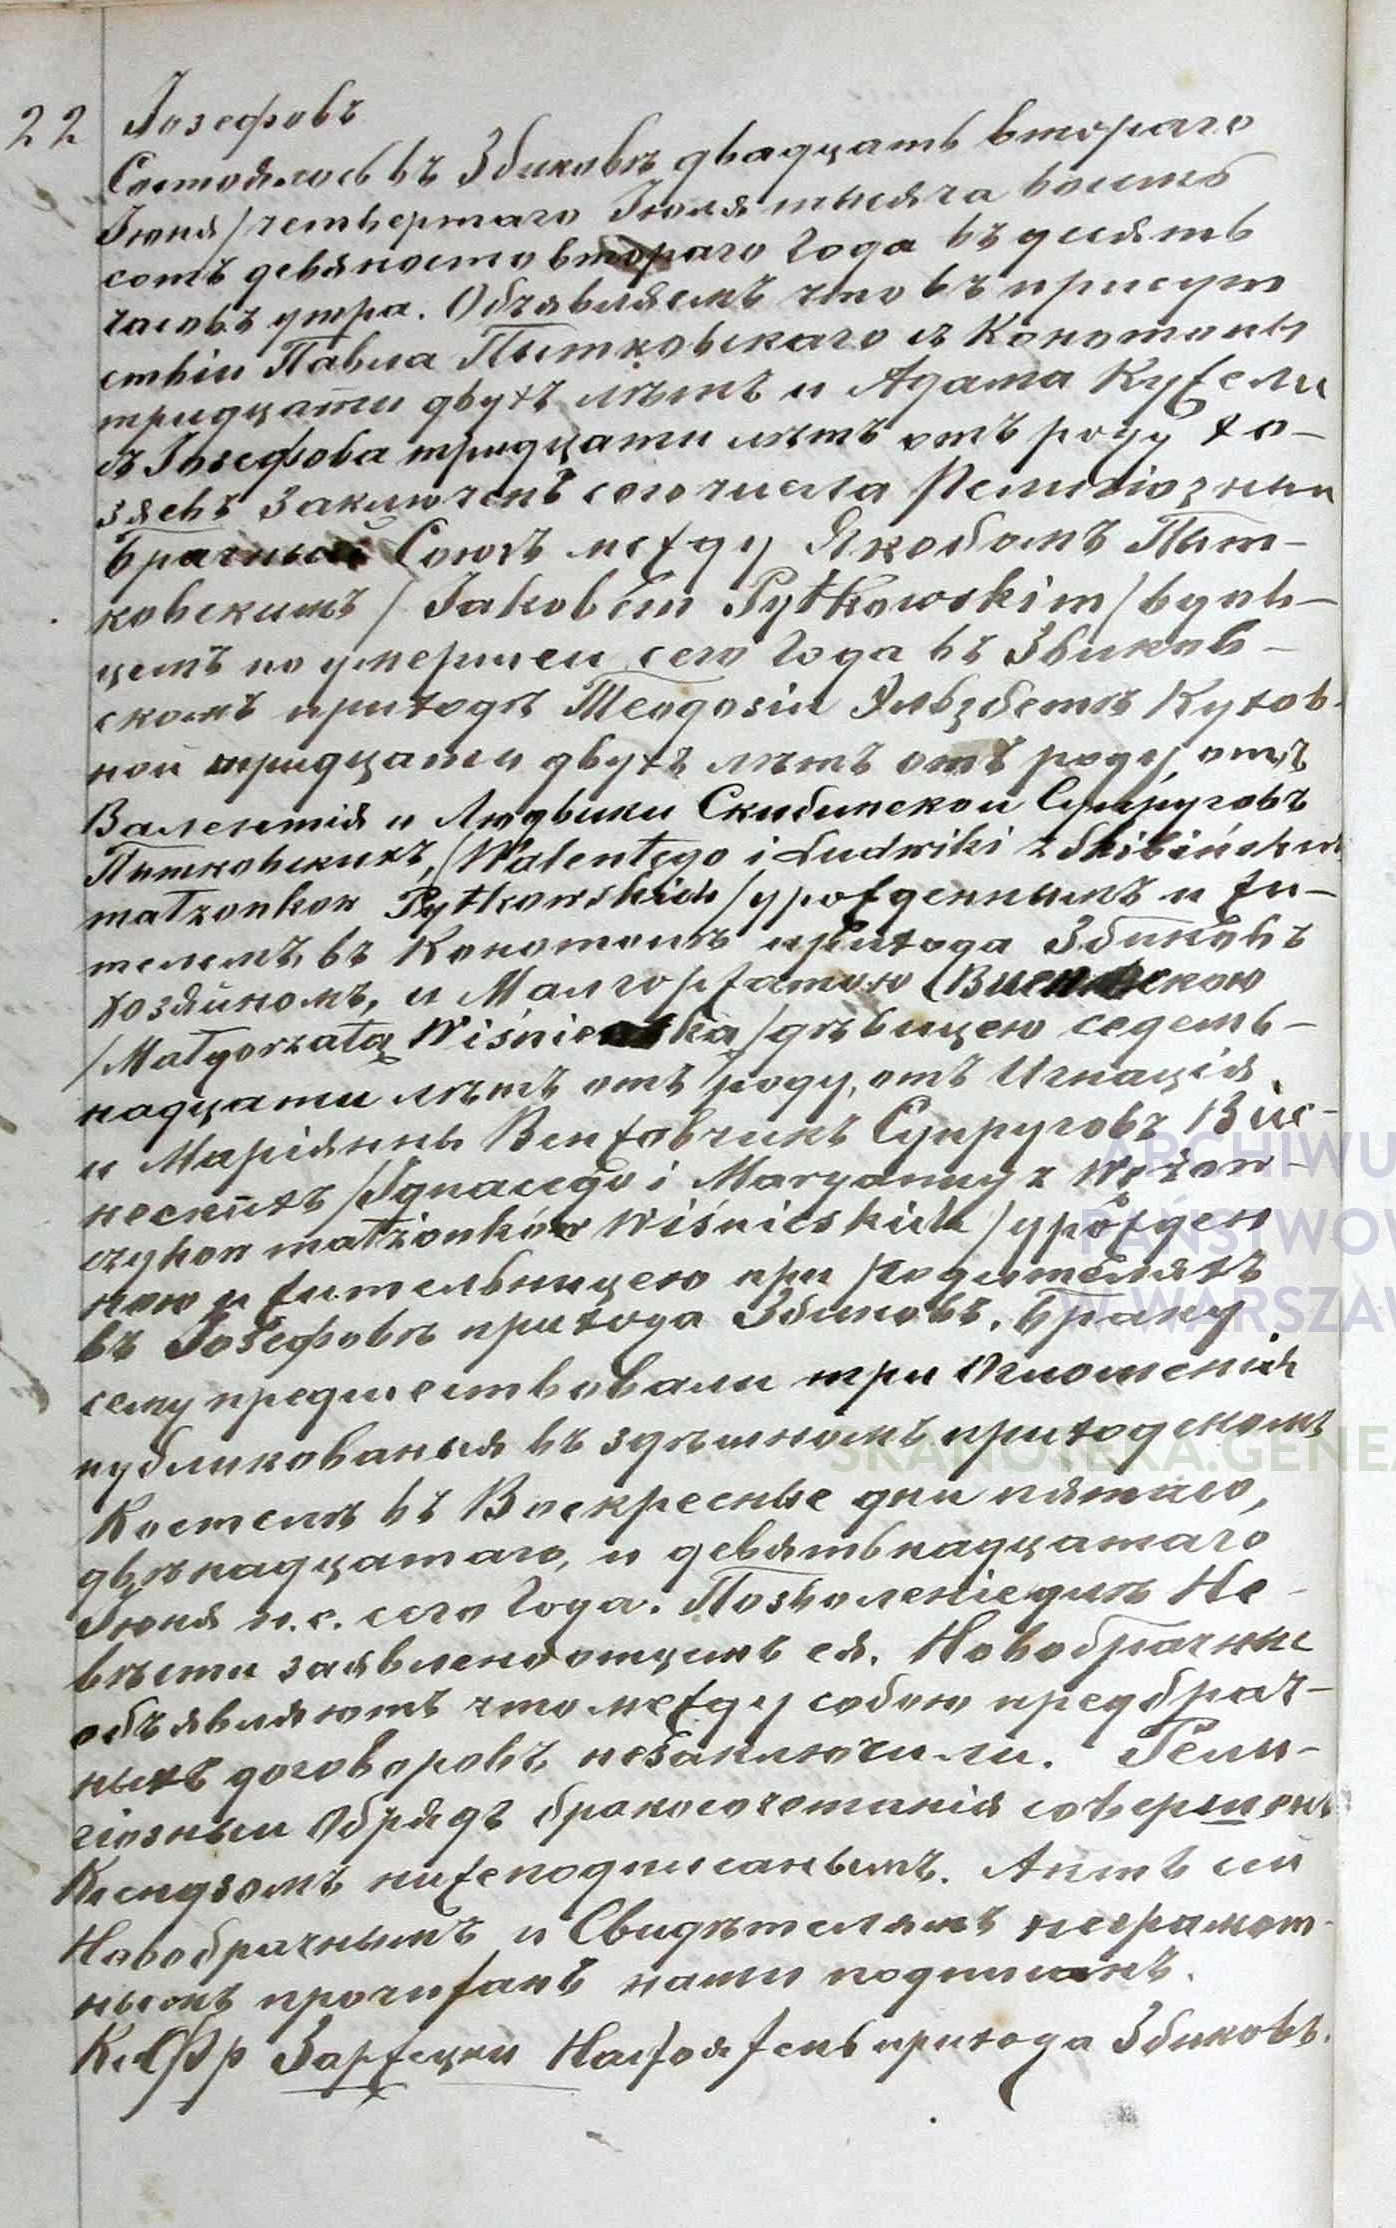 22 Іозефовъ
Состоялось въ Збиковѣ двадцать втораго
Іюня/четвертаго Іюля тысяча восимь
сотъ девяносто втораго Года въ десять
часовъ утра. Объявляемъ что въ присут
ствіи Павла Пытковскаго съ Конотопы
тридцати двухъ лѣтъ и Адама Кужели
съ Іозефова тридцати лѣтъ отъ роду хо-
зяевъ заключенъ сего числа Религіозный
брачный Союзъ между Якобомъ Пыт-
ковскимъ /Jakobem Pytkowskim/ вдов-
цемъ по умершеи сего Года въ Збиков-
скомъ приходѣ Теодозіи Эльзбетѣ Кухов-
ной тридцати двухъ лѣтъ отъ роду отъ
Валентія и Людвики Скибинскои Супруговъ
Пытковскихъ, /Walentego i Ludwiki z Skibińskich
małzonkow Pytkowskich/ урожденнымъ и жи-
телемъ въ Конотопѣ прихода Збиковъ
хозяиномъ, и Малгоржатою
/Małgorzatą Wiśnieska/ дѣвицею седемь-
надцати лѣтъ отъ роду, отъ Игнація
и Маріянны Венжовчикъ Супруговъ Вис-
нескихъ /Ignacego i Maryanny z Wężow-
czykow małżonków Wiśnieskich/ урожден
ною и жительницею при Родителяхъ
въ Іозефовѣ прихода Збиковъ. Браку
сему предшествовали три Оглошенія
публикованыя въ здѣшномъ приходскомъ
Костелѣ въ Воскресные дни пятаго,
двѣнадцатаго, и девятьнадцатаго
Іюня н.с. сего Года. Позволеніе для Не-
вѣсти заявлено отцемъ ея. Новобрачные
объявляютъ что между собою предбрач-
ныхъ договоровъ незаключили. Рели-
гіозныи Обрядъ бракосочетанія совершонъ
Ксендзомъ нижеподписанымъ. Актъ сей
Новобрачнымъ и Свидѣтелямъ неграмот-
нымъ прочитанъ нами подписанъ.
Кс. Фр Заржецки Настоятель прихода Збиковъ.
ARCHIWU
PAŃSTWOW
W WARSZAW
SKANOTEKA.GENEA